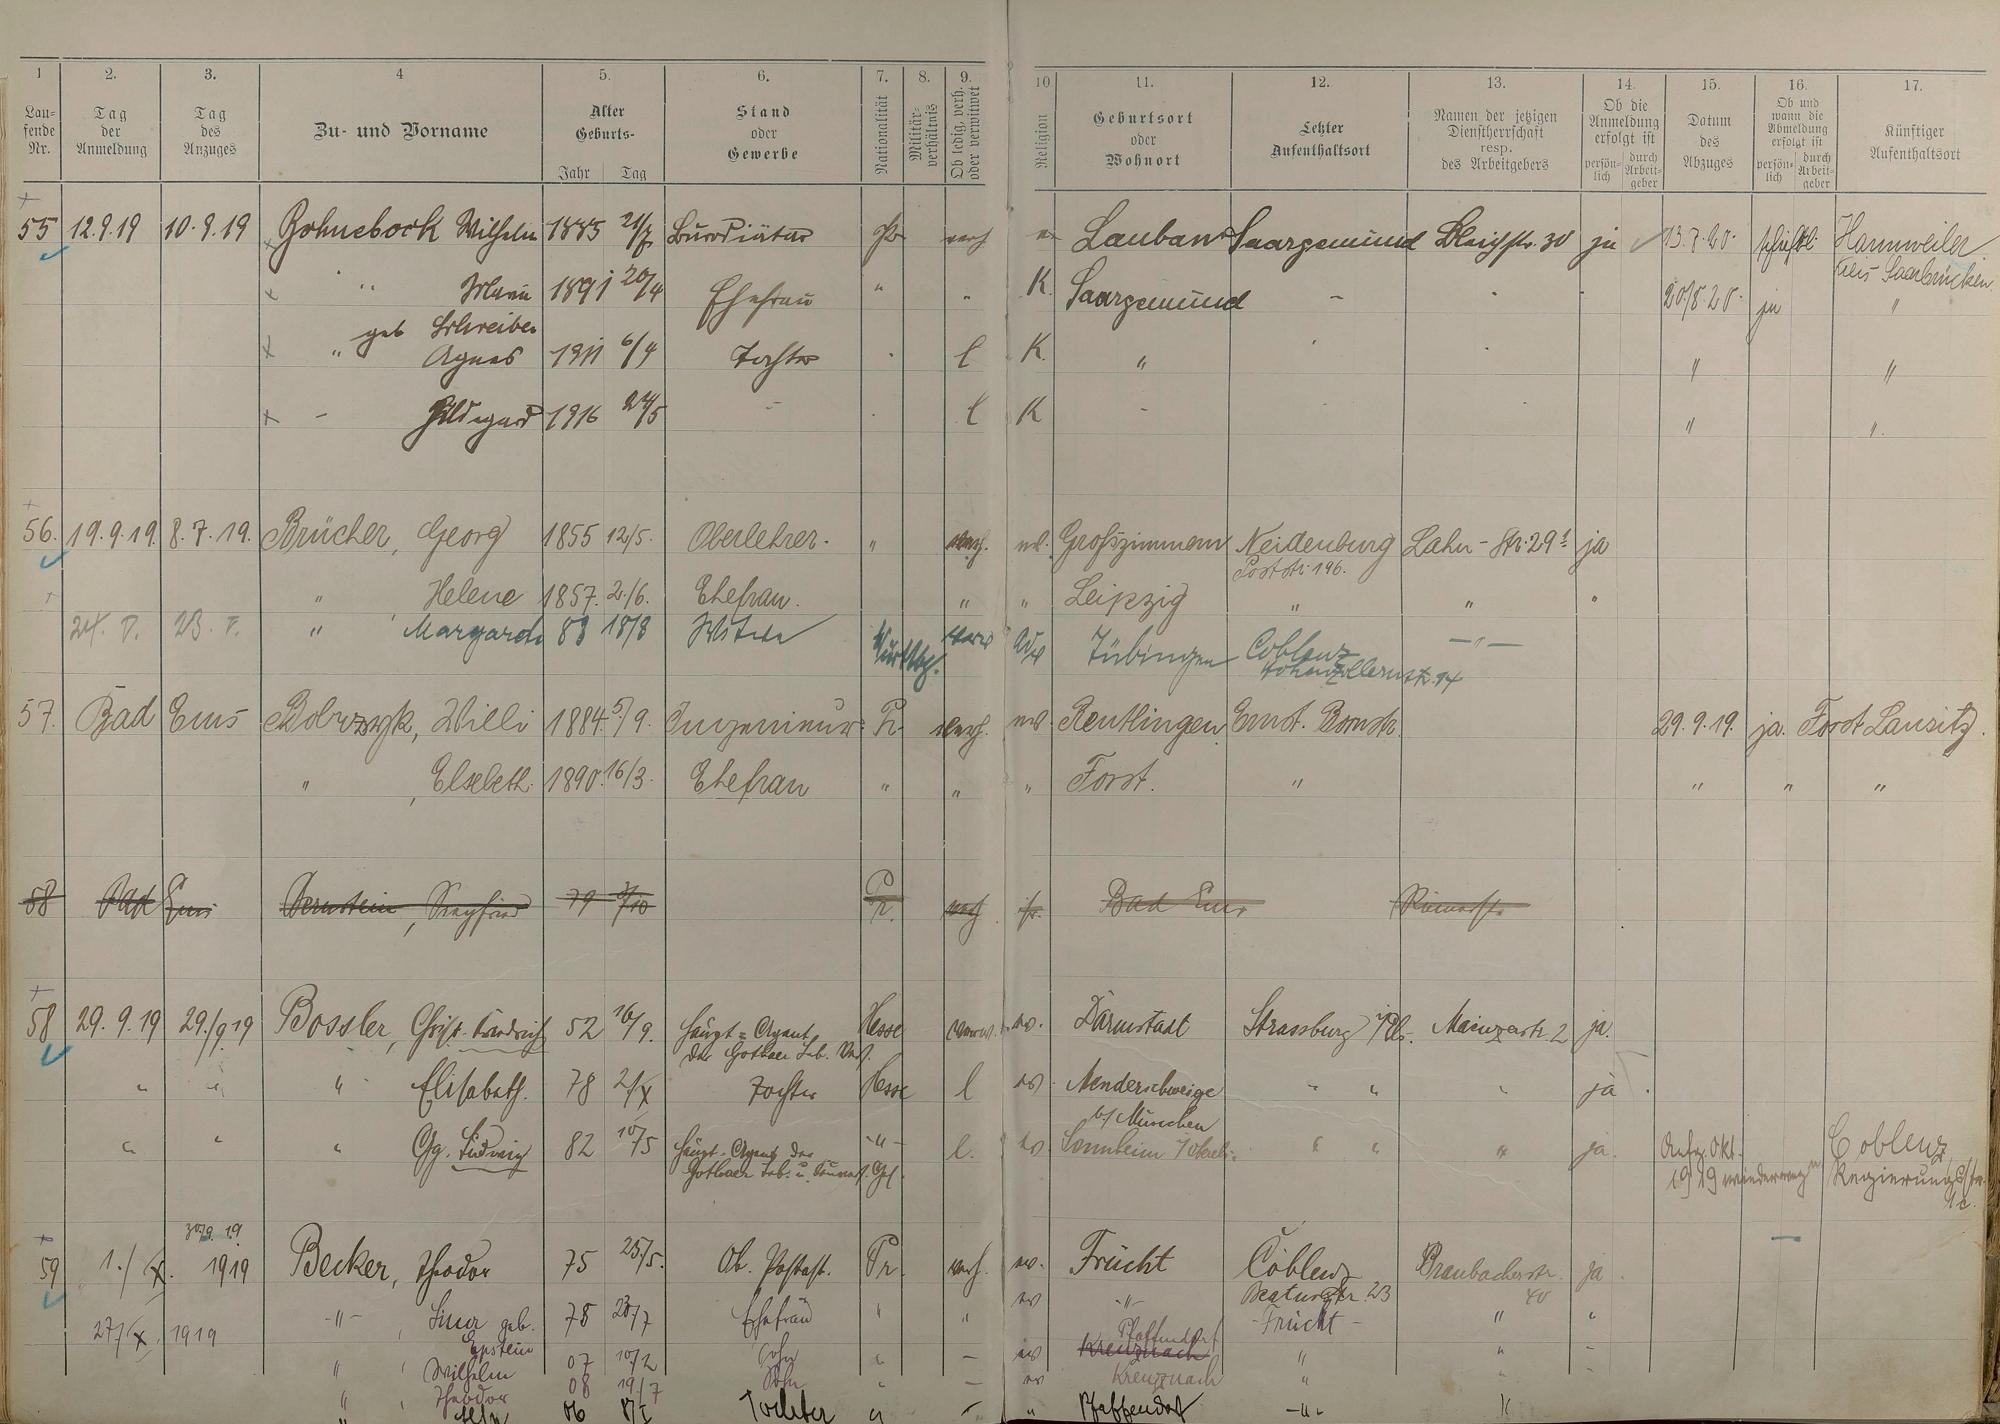 1 2. 3. 4 5. 6. 7. 8. 9. 10 11. 12. 13. 14. 15. 16. 17.
Lau-fende Nr. Tag der Anmeldung Tag des Anzuges Zu- und Vorname Alter Geburts- Jahr Tag Stand oder Gewerbe Nationalität Militär-verhältnis Ob ledig, verh. oder verwitwet Religion Geburtsort oder Wohnort Letzter Aufenthaltsort Namen der jetzigen Dienstherrschaft resp. des Arbeitgebers Ob die Anmeldung erfolgt ist persön-lich durch Arbeit-geber Datum des Abzuges Ob und wann die Abmeldung erfolgt ist persön-lich durch Arbeit-geber Künftiger Aufenthaltsort
55 12.9.19 10.9.19 Bohnebock Wilhelm 1885 21/7 Bürodiätar Pr verh ev Lauban Saargemünd Bleichstr. 30 ja 13.7.20. schriftl. Hannweiler
Kreis Saarbrücken
" Maria 1891 20/4 Ehefrau " " K. Saargemünd - 20/8 20. ja "
geb Schreiber
" Agnes 1911 6/4 Tochter l K. " " "
- Hildegard 1916 24/5 - l K - " "
56. 19.9.19. 8.7.19. Brücher, Georg 1855 12/5. Oberlehrer. " verh. ev. Grosszimmern Neidenburg Lahn-Str. 29 I ja
Poststr. 196.
" Helene 1857. 2./6. Ehefrau. " " Leipzig " " "
24. V. 23. V. " Margarete 83 18/8 Witwe Württbg. verw ev Tübingen Coblenz — " —
Hohenzollernstr. 14
57. Bad Ems Willi 1884. 5/9. Ingenieur. Pr. verh. ev. Reutlingen Ernst. Bornstr. 29.9.19. ja. Forst Lausitz.
" , Elsebeth. 1890. 16/3. Ehefrau " " " Forst. " " " "
58 Bad Ems Bernstein, Siegfried 79 7/10 Pr. verh isr. Bad Ems Römerstr.
58 29.9.19 29./9 19 Bossler, Christ. Friedrich 52 16/9. Haupt-Agent Hesse verw. ev. Darmstadt Strassburg i/Els. Mainzerstr. 2 ja.
der Gothaer Leb. Vers.
" " " Elisabeth. 78 2/X Tochter Hesse l ev. Menderschweige " " " ja
b/ München
" " " Gg. Ludwig 82 10/5 Haupt-Agent der -"- l. ev. " " " ja. Anfg. Okt. Coblenz,
Gothaer Leb. u. 1919 Regierungsstr.
1c.
30/9. 19.
59 1./X. 1919 Becker, Theodor 75 25/5. Ob. Postast. Pr. verh. ev. Frücht Coblenz Braubacherstr. ja
40
-"- , geb. 78 23/7 Ehefrau " " ev -"- -Frücht- " "
27/X. 1919 Epstein Pfaffendorf
" , Wilhelm 07 10/2 Sohn " - ev Kreuznach " " -
" , Theodor 08 19/7 Sohn " - ev Kreuznach " " -
" 06 Tochter " " Pfaffendorf -"- "